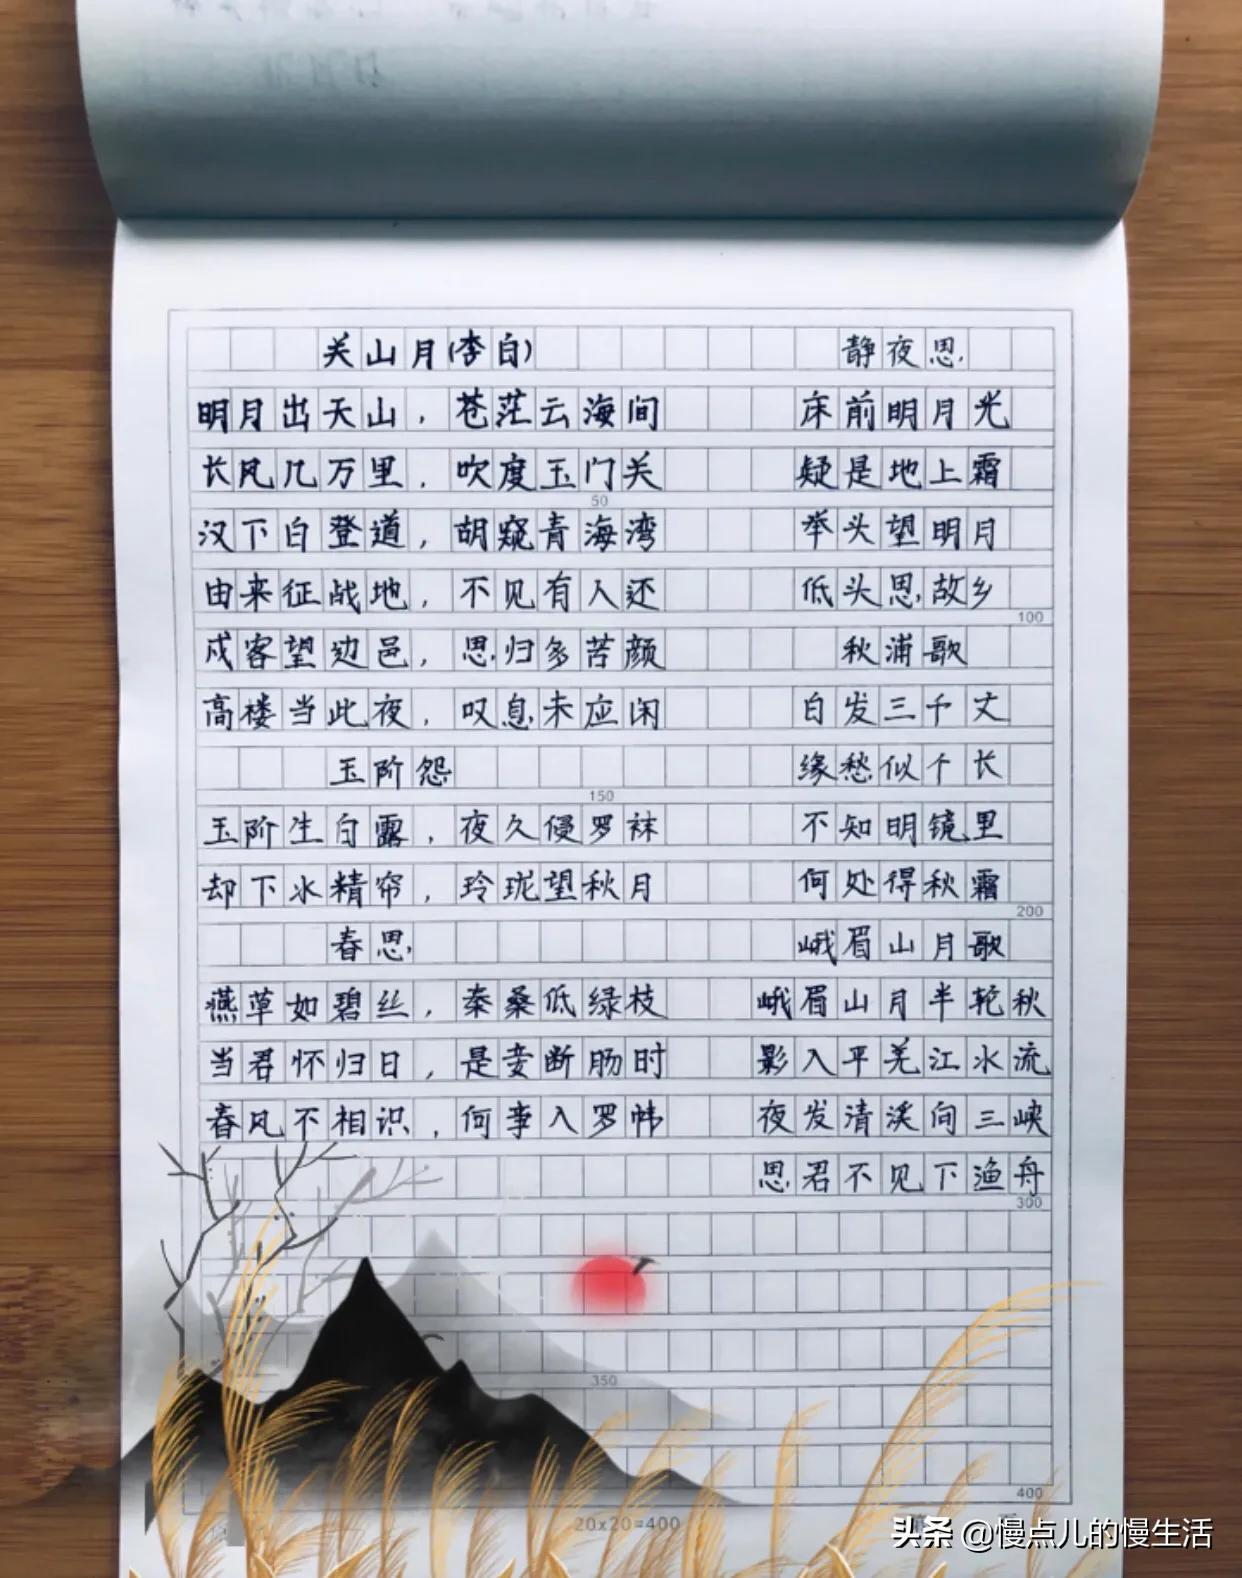 关山月(李白)
明月出天山，苍茫云海间
长风几万里，吹度玉门关
50
汉下白登道，胡窥青海湾
由来征战地，不见有人还
戍客望边邑，思归多苦颜
高楼当此夜，叹息未应闲
玉阶怨
150
玉阶生白露，夜久侵罗袜
却下水精帘，玲珑望秋月
春思
燕草如碧丝，秦桑低绿枝
当君怀归日，是妾断肠时
春风不相识，何事入罗帏
静夜思
床前明月光
疑是地上霜
举头望明月
低头思故乡
100
秋浦歌
白发三千丈
缘愁似个长
不知明镜里
何处得秋霜
200
峨眉山月歌
峨眉山月半轮秋
影入平羌江水流
夜发清溪向三峡
思君不见下渔舟
300
350
400
20x20=400
头条 @慢点儿的慢生活